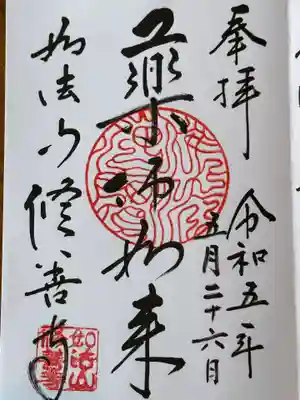 奉拝
令和五年
五月二十六日
薬師如来
如法山修善寺
如法山
修善寺